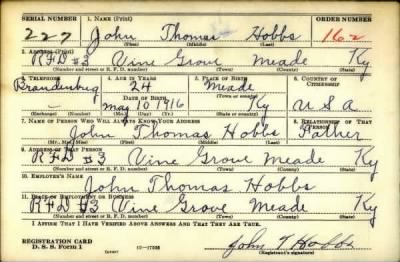 SERIAL NUMBER 1. NAME (Print) ORDER NUMBER
227 John Thomas Hobbs 162
(First) (Middle) (Last)
2. ADDRESS (Print)
RFD #3 Vine Grove Meade Ky
(Number and street or R. F. D. number) (Town) (County) (State)
3. TELEPHONE 4. AGE IN YEARS 5. PLACE OF BIRTH 6. COUNTRY OF CITIZENSHIP
Brandenburg 24 Meade
DATE OF BIRTH (Town or county)
May 10 1916 Ky U S A
(Exchange) (Number) (Mo.) (Day) (Yr.) (State or country)
7. NAME OF PERSON WHO WILL ALWAYS KNOW YOUR ADDRESS 8. RELATIONSHIP OF THAT PERSON
John Thomas Hobbs Father
(Mr., Mrs., Miss) (First) (Middle) (Last)
9. ADDRESS OF THAT PERSON
RFD #3 Vine Grove Meade Ky
(Number and street or R. F. D. number) (Town) (County) (State)
10. EMPLOYER'S NAME
John Thomas Hobbs
11. PLACE OF EMPLOYMENT OR BUSINESS
RFD #3 Vine Grove Meade Ky
(Number and street or R. F. D. number) (Town) (County) (State)
I AFFIRM THAT I HAVE VERIFIED ABOVE ANSWERS AND THAT THEY ARE TRUE.
REGISTRATION CARD
D. S. S. Form 1 John T Hobbs
(Registrant's signature)